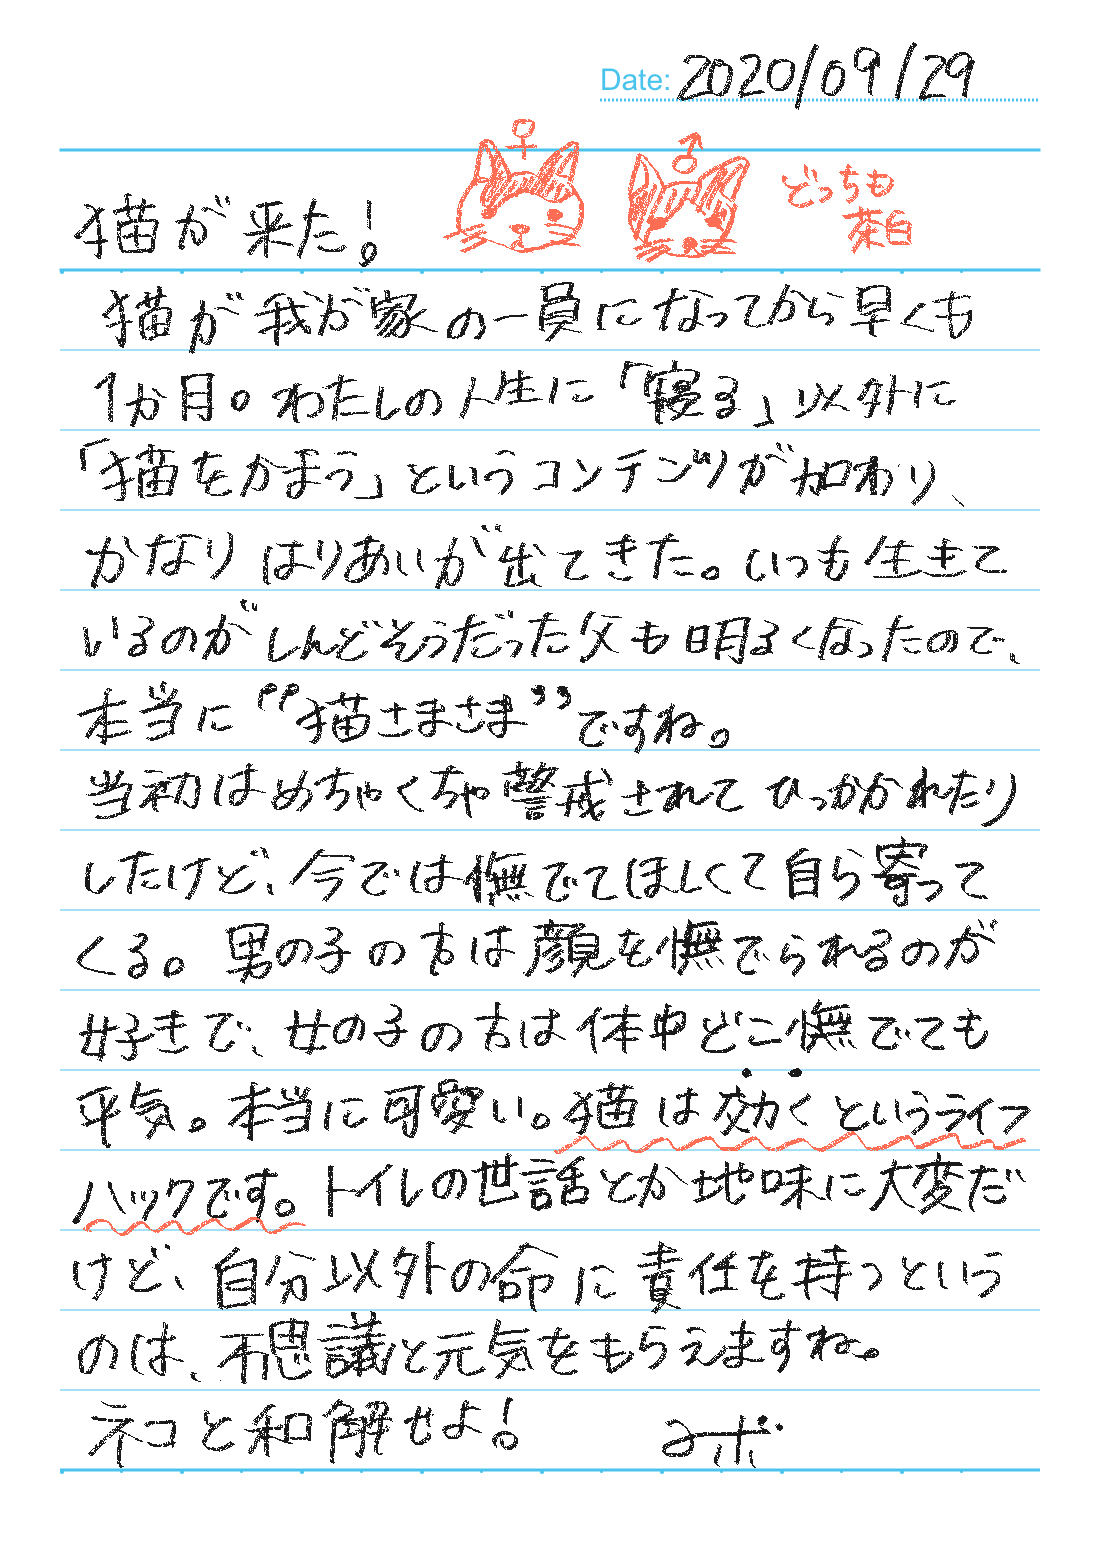 Date: 2020/09/29
♀ ♂
どっちも
茶白
猫が来た!
猫が我が家の一員になってから早くも
1か月。わたしの人生に「寝る」以外に
「猫をかまう」というコンテンツが加わり、
かなりはりあいが出てきた。いつも生きて
いるのがしんどそうだった父も明るくなったので、
本当に“猫さまさま”ですね。
当初はめちゃくちゃ警戒されてひっかかれたり
したけど、今では憮でてほしくて自ら寄って
くる。男の子の方は顔を憮でられるのが
好きで、女の子の方は体中どこ憮でても
平気。本当に可愛い。猫は効くというライフ
ハックです。トイレの世話とか地味に大変だ
けど、自分以外の命に責任を持つという
のは、不思議と元気をもらえますね。
ネコと和解せよ!